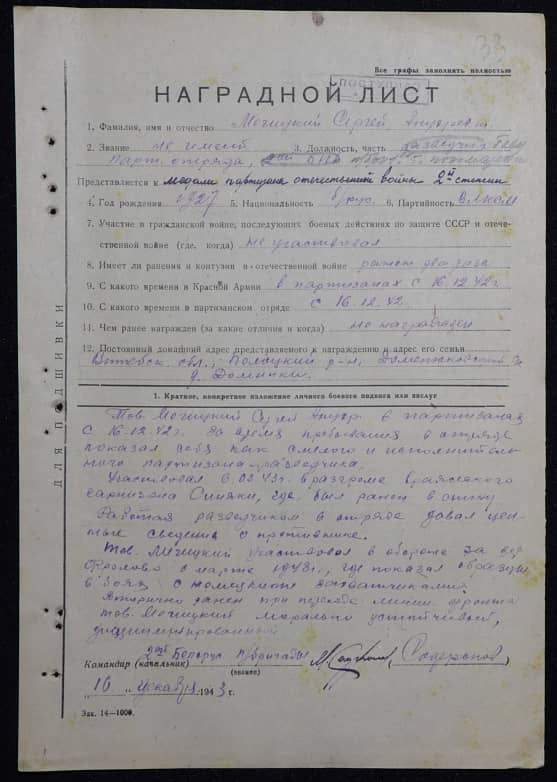 38
Все графы заполнить полностью
НАГРАДНОЙ ЛИСТ
1. Фамилия, имя и отчество Мочицкий Сергей
2. Звание не имеет 3. Должность, часть разведчик
парт. отряда,
Представляется к медали партизана отечественной войны 2й степени
4. Год рождения 1927 5. Национальность 6. Партийность
7. Участие в гражданской войне, последующих боевых действиях по защите СССР и отече-
ственной войне (где, когда) не участвовал
8. Имеет ли ранения и контузии в отечественной войне ранен два раза
9. С какого времени в Красной Армии в партизанах с 16.12.42г
10. С какого времени в партизанском отряде с 16.12.42
11. Чем ранее награжден (за какие отличия и когда) не награжден
12. Постоянный домашний адрес представляемого к награждению и адрес его семьи
Витебск. обл., Полоцкий р-н,
д. Доминики.
1. Краткое, конкретное изложение личного боевого подвига или заслуг
Тов. Мочицкий Сергей в партизанах
с 16.12.42г. За время пребывания в отряде
показал себя как смелого и исполнитель-
ного партизана-разведчика.
Участвовал в 03.43г. в разгроме вражеского
гарнизона Синяки, где был ранен в
Работая разведчиком в отряде давал цен-
ные сведения о противнике.
Тов. Мочицкий участвовал в обороне за дер
в марте 1943г., где показал образцы
в боях с немецкими захватчиками.
Вторично ранен при переходе линии фронта
тов. Мочицкий морально устойчивый,
дисциплинированный
2ой Белорус п/бригады
Командир (начальник) (Сафронов)
(подпись)
„16„ декабря 1943 г.
Зак. 14—1000.
ДЛЯ ПОДШИВКИ